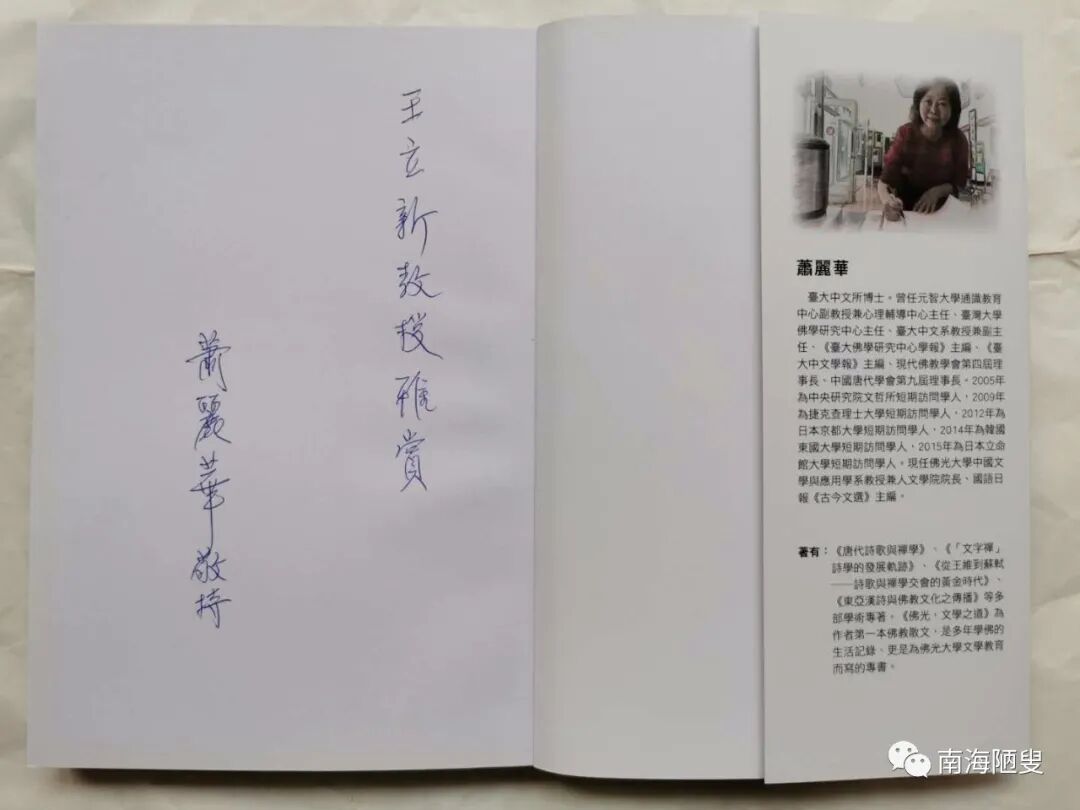 王立新教授雅賞
蕭麗華敬持
蕭麗華
臺大中文所博士。曾任元智大學通識教育
中心副教授兼心理輔導中心主任、臺灣大學
佛學研究中心主任、臺大中文系教授兼副主
任、《臺大佛學研究中心學報》主編、《臺
大中文學報》主編、現代佛教學會第四屆理
事長、中國唐代學會第九屆理事長。2005年
為中央研究院文哲所短期訪問學人，2009年
為捷克查理士大學短期訪問學人，2012年為
日本京都大學短期訪問學人，2014年為韓國
東國大學短期訪問學人，2015年為日本立命
館大學短期訪問學人。現任佛光大學中國文
學與應用學系教授兼人文學院院長、國語日
報《古今文選》主編。
著有：《唐代詩歌與禪學》、《「文字禪」
詩學的發展軌跡》、《從王維到蘇軾
——詩歌與禪學交會的黃金時代》、
《東亞漢詩與佛教文化之傳播》等多
部學術專著。《佛光，文學之道》為
作者第一本佛教散文，是多年學佛的
生活記錄、更是為佛光大學文學教育
而寫的專書。
南海陋叟